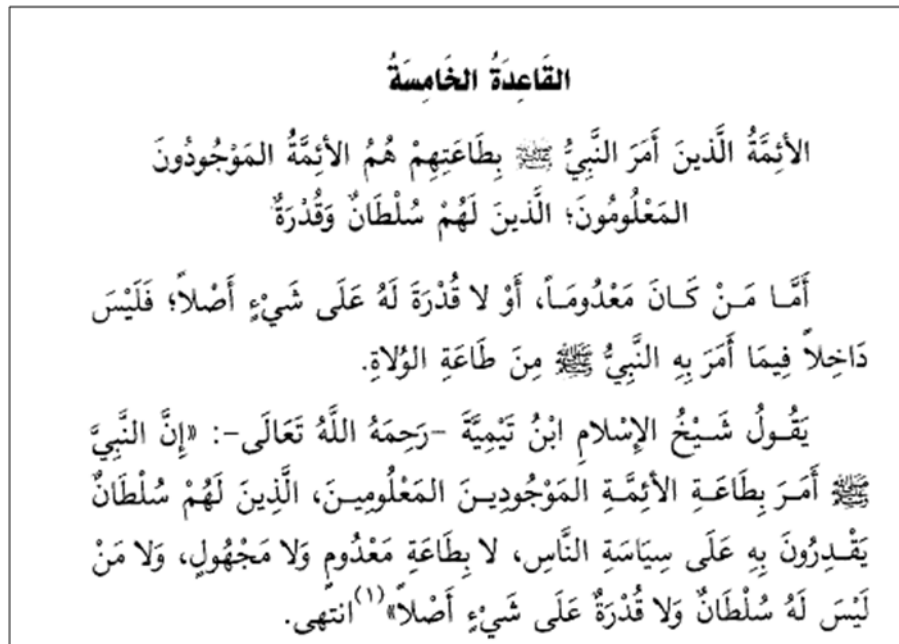 القَاعِدَةُ الخَامِسَةُ
الأئِمَّةُ الَّذينَ أَمَرَ النَّبِيُّ ﷺ بِطَاعَتِهِمْ هُمُ الأئِمَّةُ المَوْجُودُونَ
المَعْلُومُونَ؛ الَّذينَ لَهُمْ سُلْطَانٌ وَقُدْرَةٌ
أَمَّا مَنْ كَانَ مَعْدُومَاً، أَوْ لا قُدْرَةَ لَهُ عَلَى شَيْءٍ أَصْلاً؛ فَلَيْسَ
دَاخِلاً فِيمَا أَمَرَ بِهِ النَّبِيُّ ﷺ مِنَ طَاعَةِ الوُلاةِ.
يَقُولُ شَيْخُ الإسْلامِ ابْنُ تَيْمِيَّةَ -رَحِمَهُ اللَّهُ تَعَالَى-: «إِنَّ النَّبِيَّ
ﷺ أَمَرَ بِطَاعَةِ الأئِمَّةِ المَوْجُودِينَ المَعْلُومِينَ، الَّذِينَ لَهُمْ سُلْطَانٌ
يَقْدِرُونَ بِهِ عَلَى سِيَاسَةِ النَّاسِ، لا بِطَاعَةِ مَعْدُومٍ وَلا مَجْهُولٍ، وَلا مَنْ
لَيْسَ لَهُ سُلْطَانٌ وَلا قُدْرَةٌ عَلَى شَيْءٍ أَصْلاً»(١) انتهى.